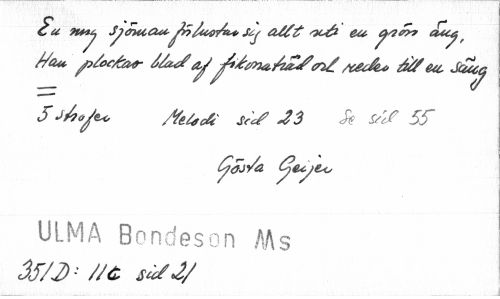 En ung sjöman förlustar sig allt uti en grön äng,
Han plockar blad af fikonaträd och reder till en säng
5 strofer Melodi sid 23 Se sid 55
Gösta Geijer
ULMA Bondeson Ms
351D: 11C sid 21